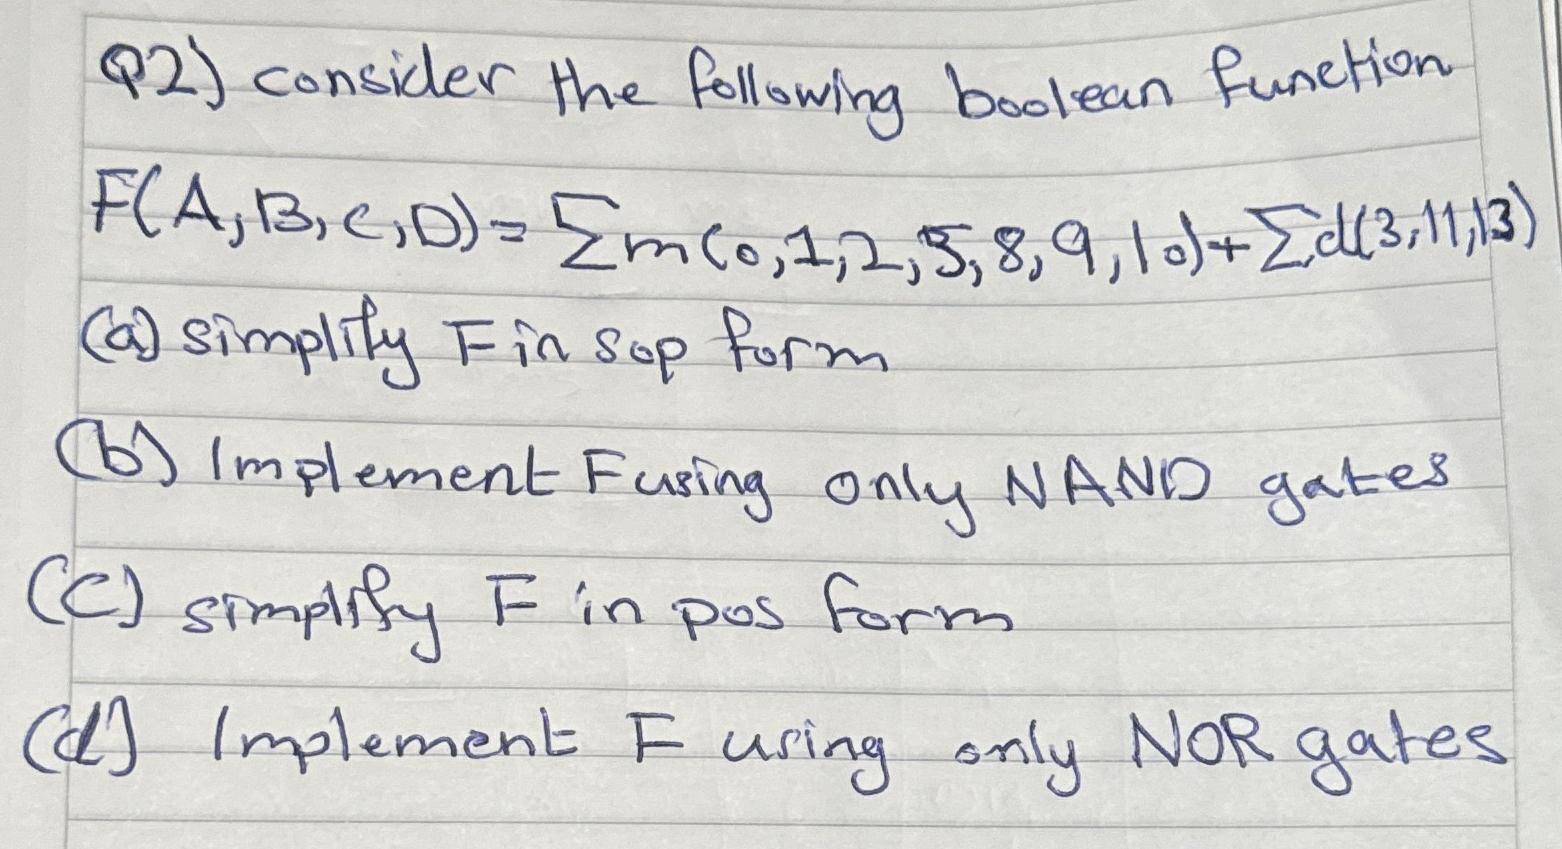 Q2) consider the following boolean function
F(A,B,C,D)=Σm(0,1,2,5,8,9,10)+Σd(3,11,13)
(a) simplify F in sop form
(b) Implement F using only NAND gates
(C) simplify F in pos form
(d) Implement F using only NOR gates